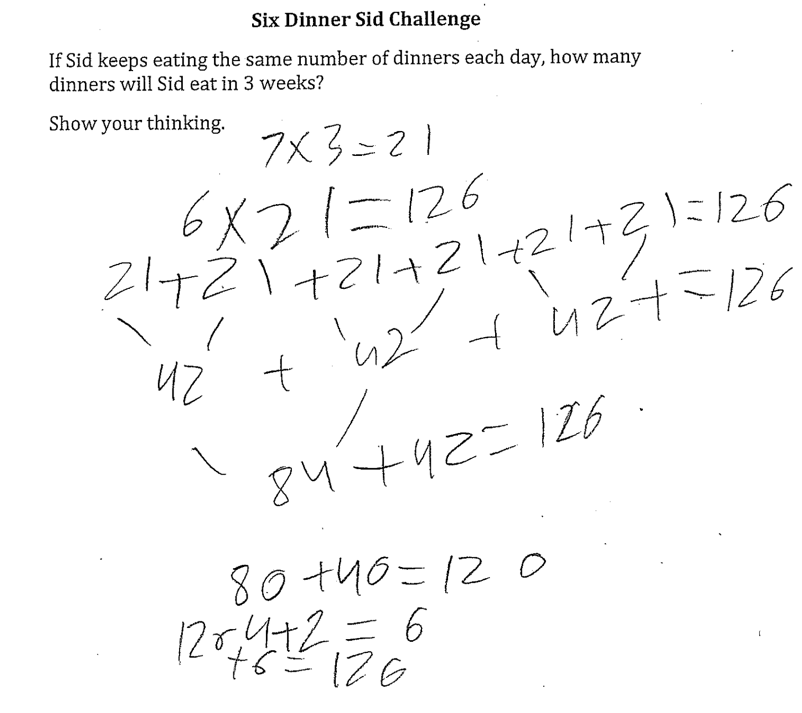 Six Dinner Sid Challenge
If Sid keeps eating the same number of dinners each day, how many
dinners will Sid eat in 3 weeks?
Show your thinking.
7×3=21
6×21=126
21+21+21+21+21+21=126
42 + 42 + 42+=126
84+42=126
80+40=120
4+2=6
+6=126